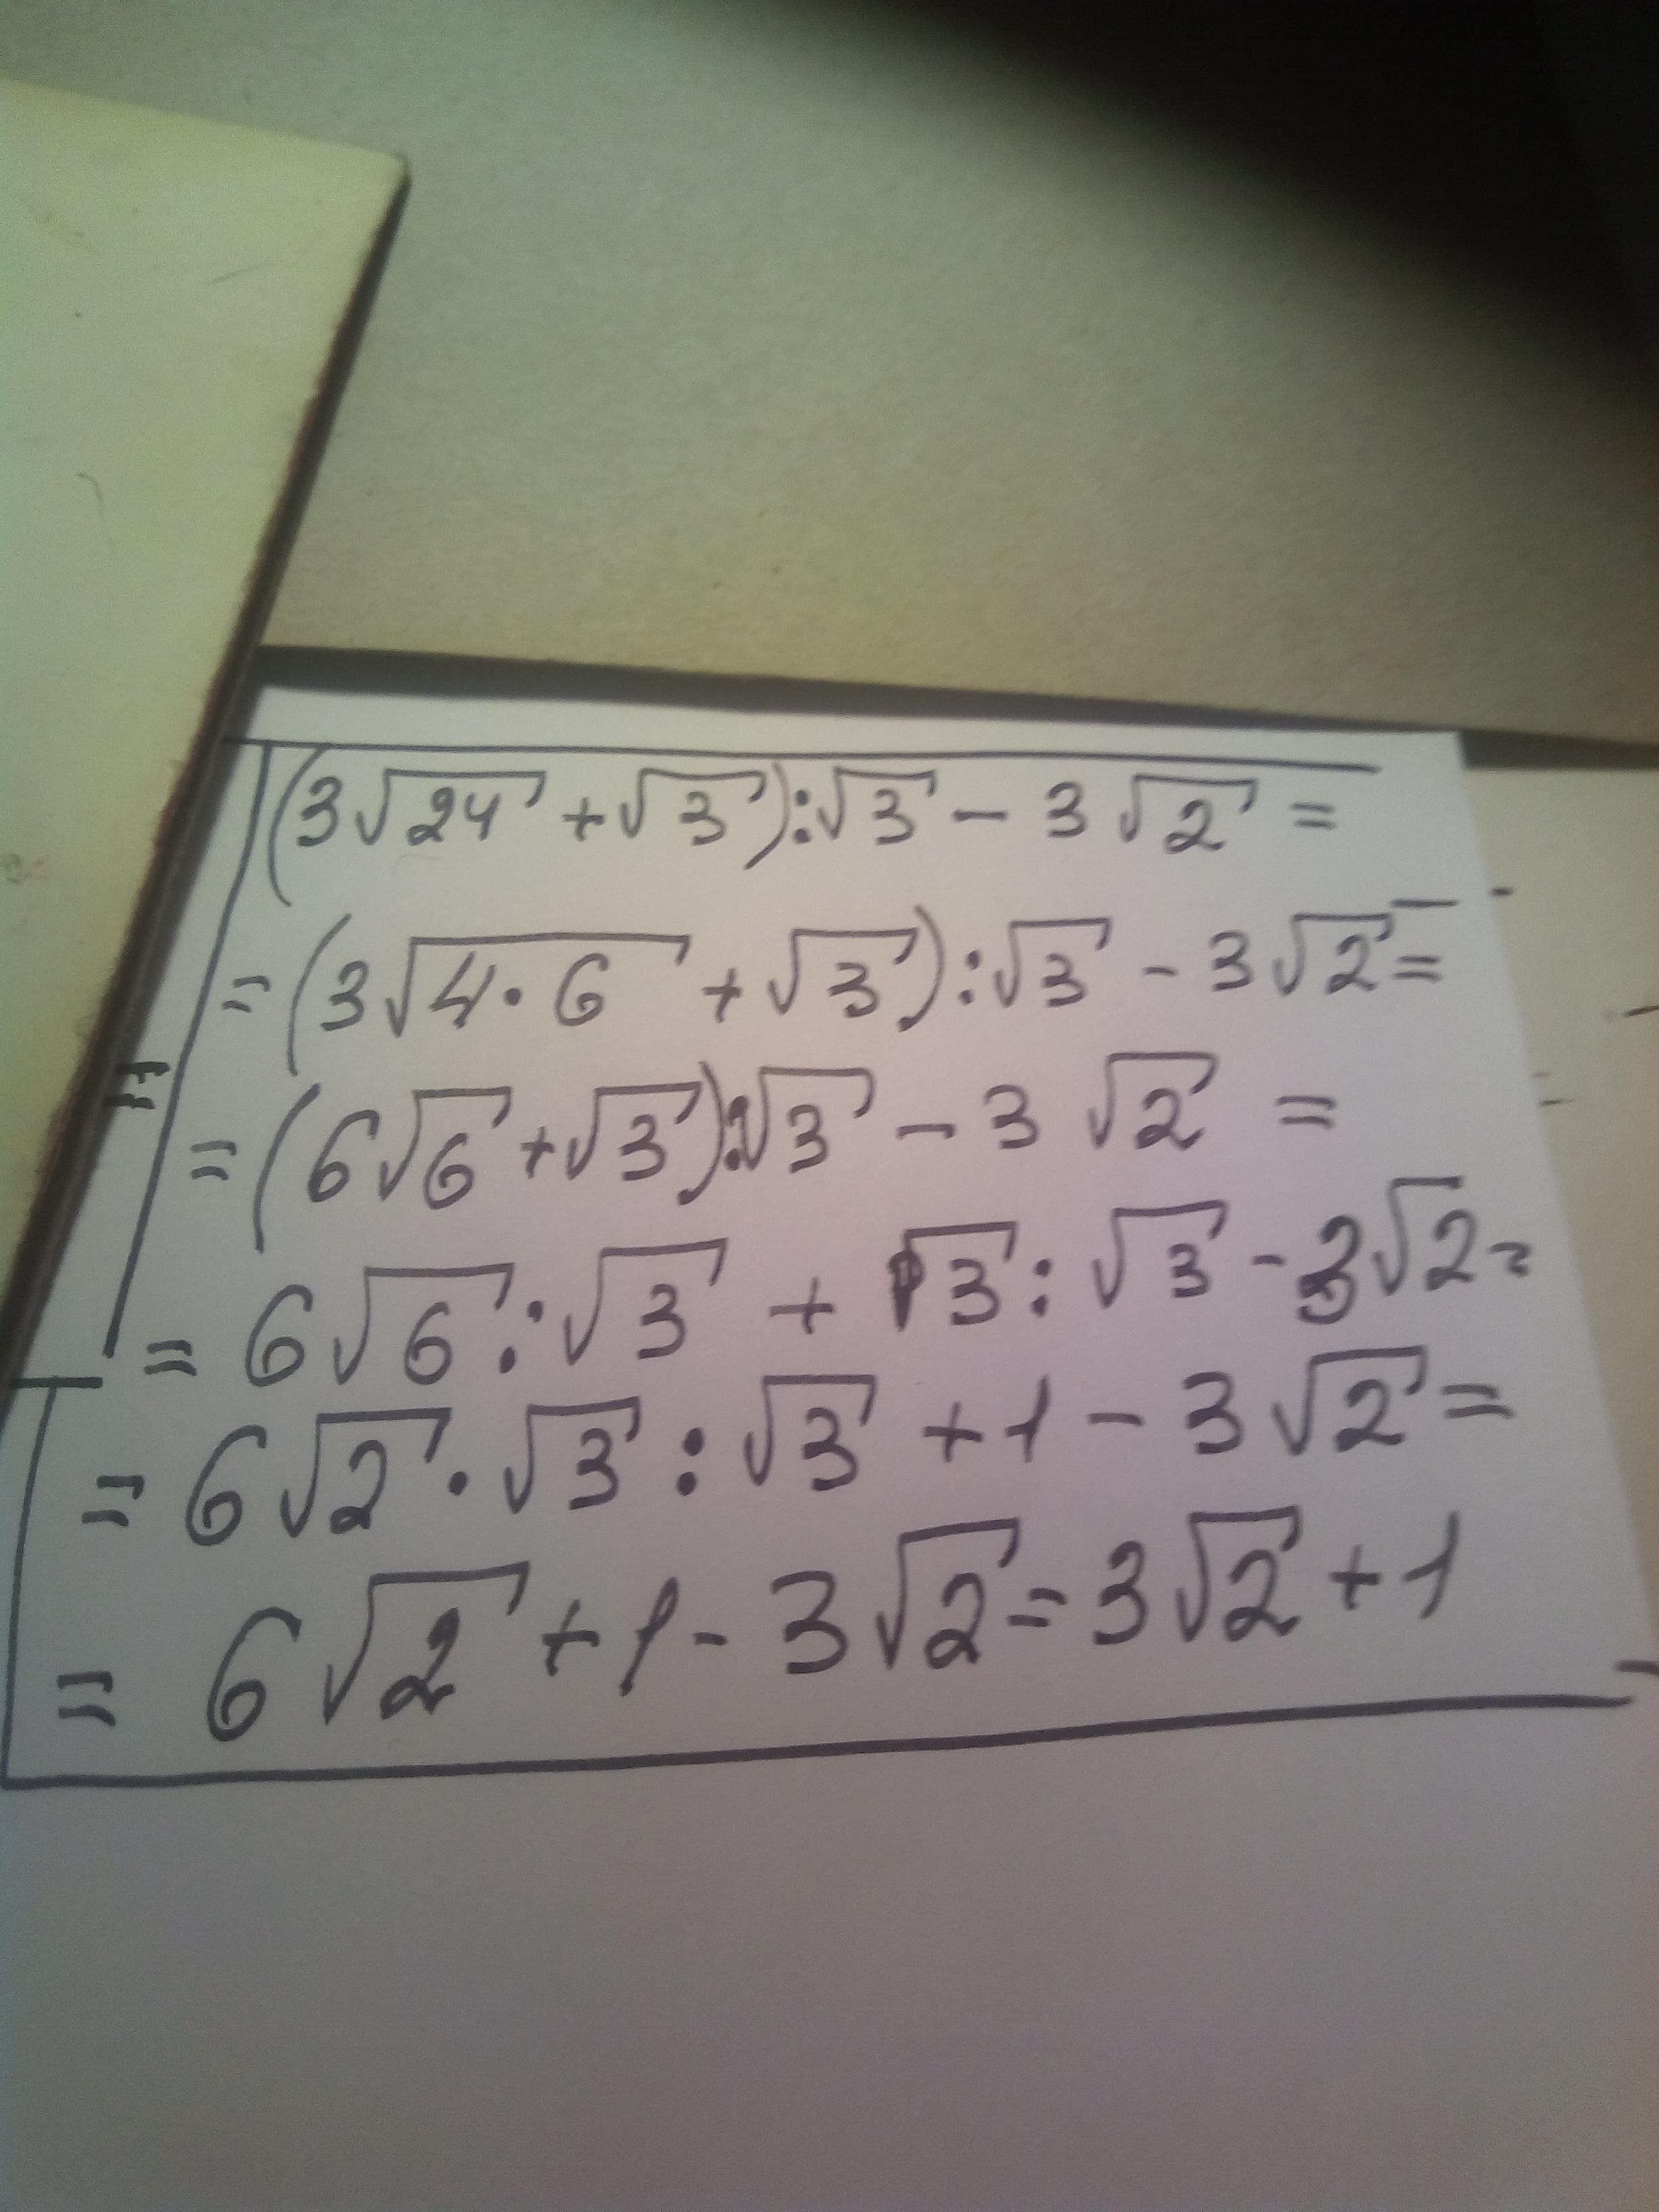 (3√24 + √3) : √3 − 3√2 =
= (3√4·6 + √3) : √3 − 3√2 =
= (6√6 + √3) : √3 − 3√2 =
= 6√6 : √3 + √3 : √3 − 3√2 =
= 6√2 · √3 : √3 + 1 − 3√2 =
= 6√2 + 1 − 3√2 = 3√2 + 1